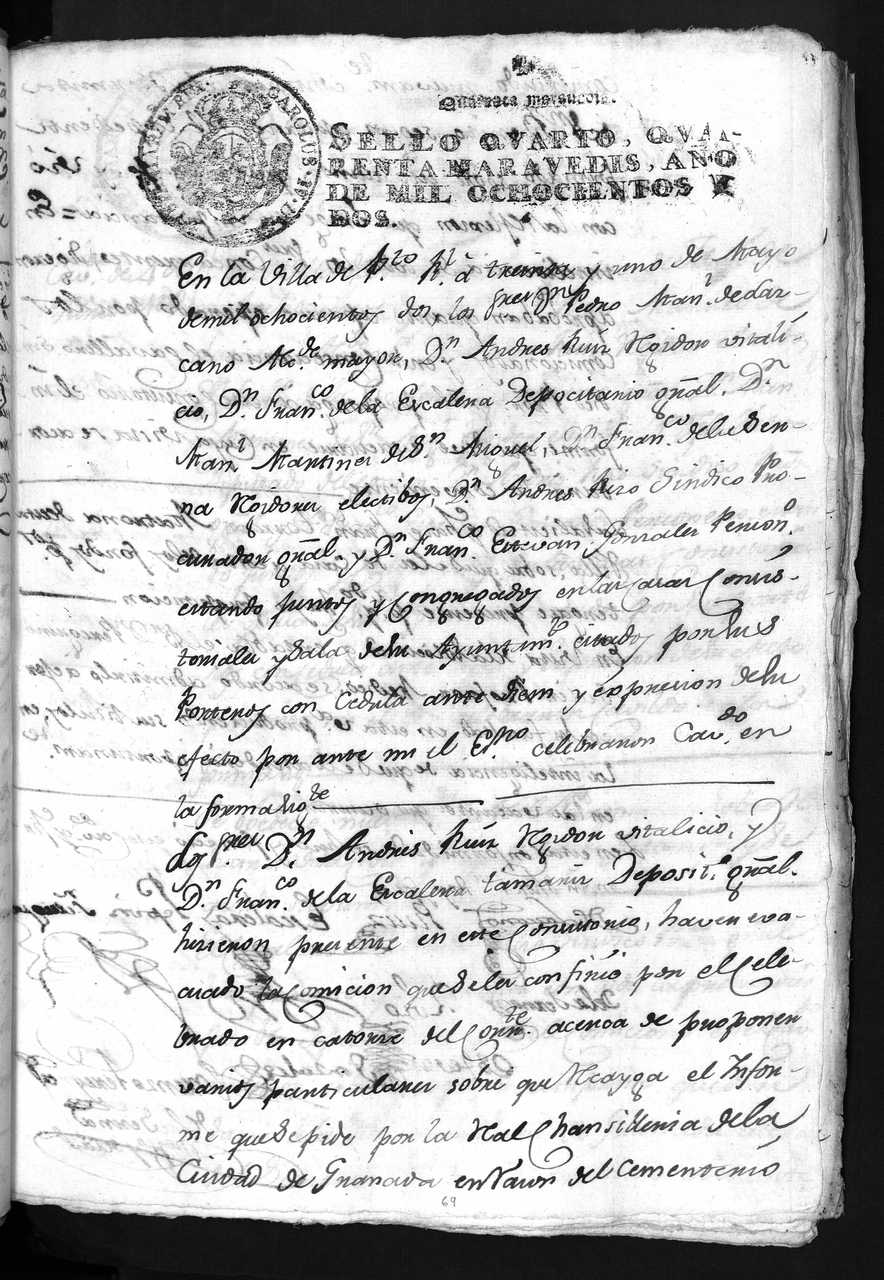 Quarenta maravedis.
SELLO QVARTO, QVA-
RENTA MARAVEDIS, AÑO
DE MIL OCHOCIENTOS Y
DOS.
CAROLUS
En la Villa de Pto Rl á treinta y uno de Mayo
de mil ochocientos dos los Sres Dn Pedro Manl. de Lar-
cano Alcde mayor, Dn Andres Ruiz Rgidor vitali-
cio, Dn Franco de la Escalera Depocitario gñal. Dn
Manl Martinez de Sn Miguel, Dn Franco de la Ser-
na Rgidores electibos, Dn Andres Riso Sindico Pro-
curador gñal. y Dn Franco Estevan Gonzales Person.
estando juntos y Congregados en las Casas Consis-
toriales y Sala de su Ayuntimto citados por sus
Porteros con Cedula ante diem y expresion de su
efecto por ante mi el Esno celebraron Cavdo en
la forma sigte
Los Sres Dn Andres Ruiz Rgidor vitalicio, y
Dn Franco de la Escalera tamariz Deposito gñal.
hisieron presente en este Consistorio, haver eva-
cuado la Comicion que se les confirió por el Cele-
brado en catorce del Corrte acerca de proponer
varios particulares sobre que Rcayga el Infor-
me que se pide por la Ral Chansilleria de la
Ciudad de Granada en rason del Cementerio
69